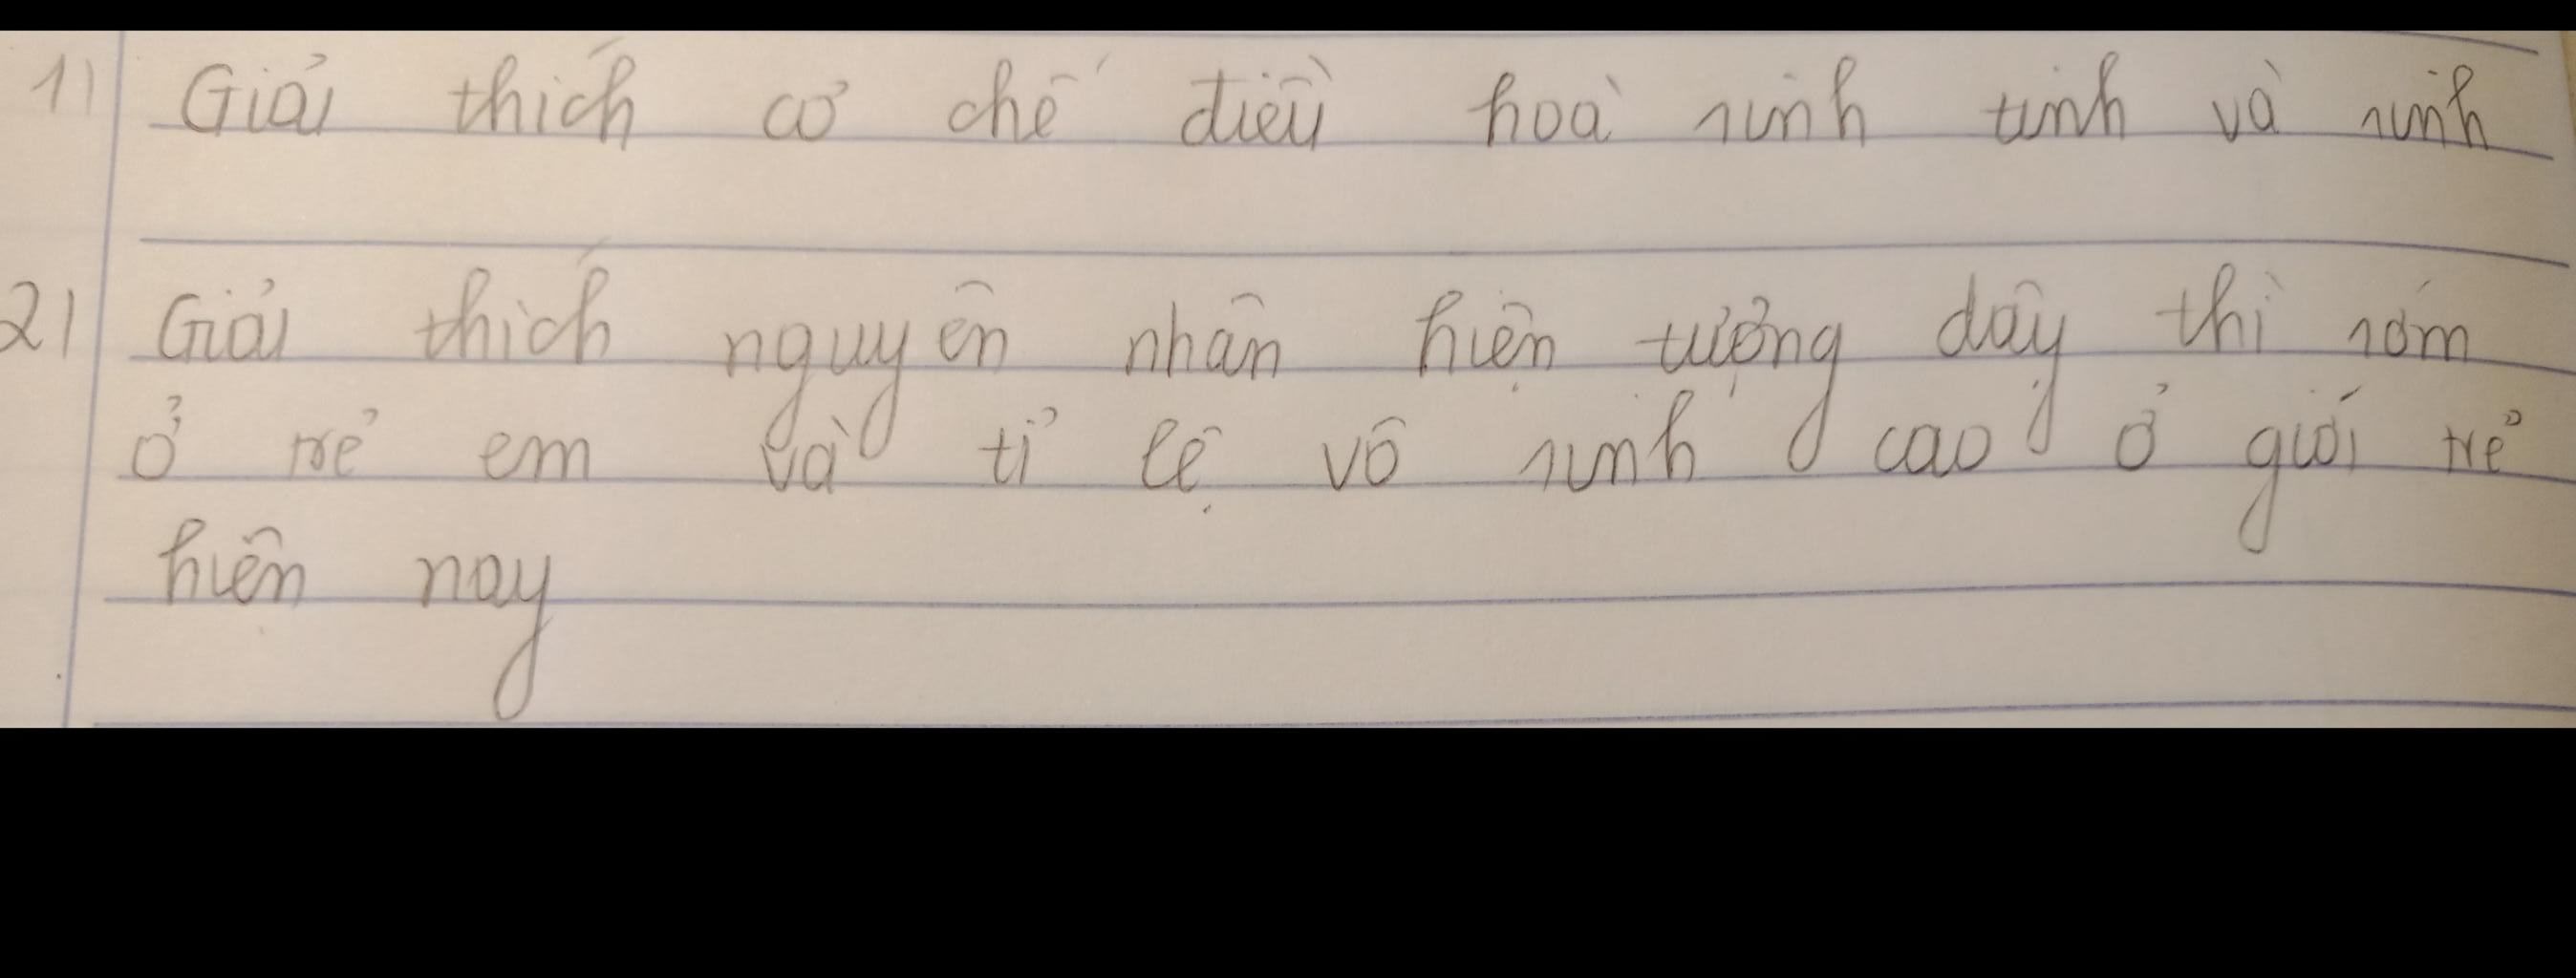 1) Giải thích cơ chế điều hoà sinh tinh và sinh
2) Giải thích nguyên nhân hiện tượng dậy thì sớm
ở trẻ em và tỉ lệ vô sinh cao ở giới trẻ
hiện nay